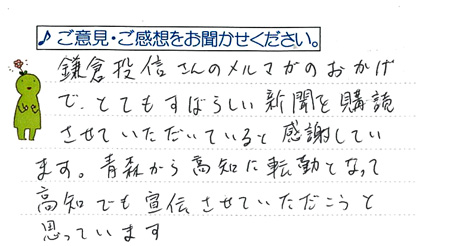 ♪ご意見・ご感想をお聞かせください。
鎌倉投信さんのメルマガのおかげ
で、とてもすばらしい新聞を購読
させていただいていると感謝してい
ます。青森から高知に転勤となって
高知でも宣伝させていただこうと
思っています